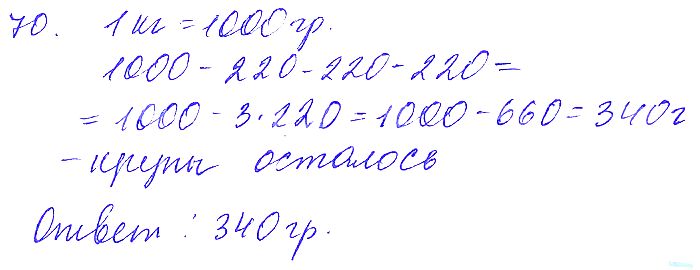 70. 1 кг = 1000 гр.
1000 - 220 - 220 - 220 =
= 1000 - 3·220 = 1000 - 660 = 340 г
- крупы осталось
Ответ: 340 гр.